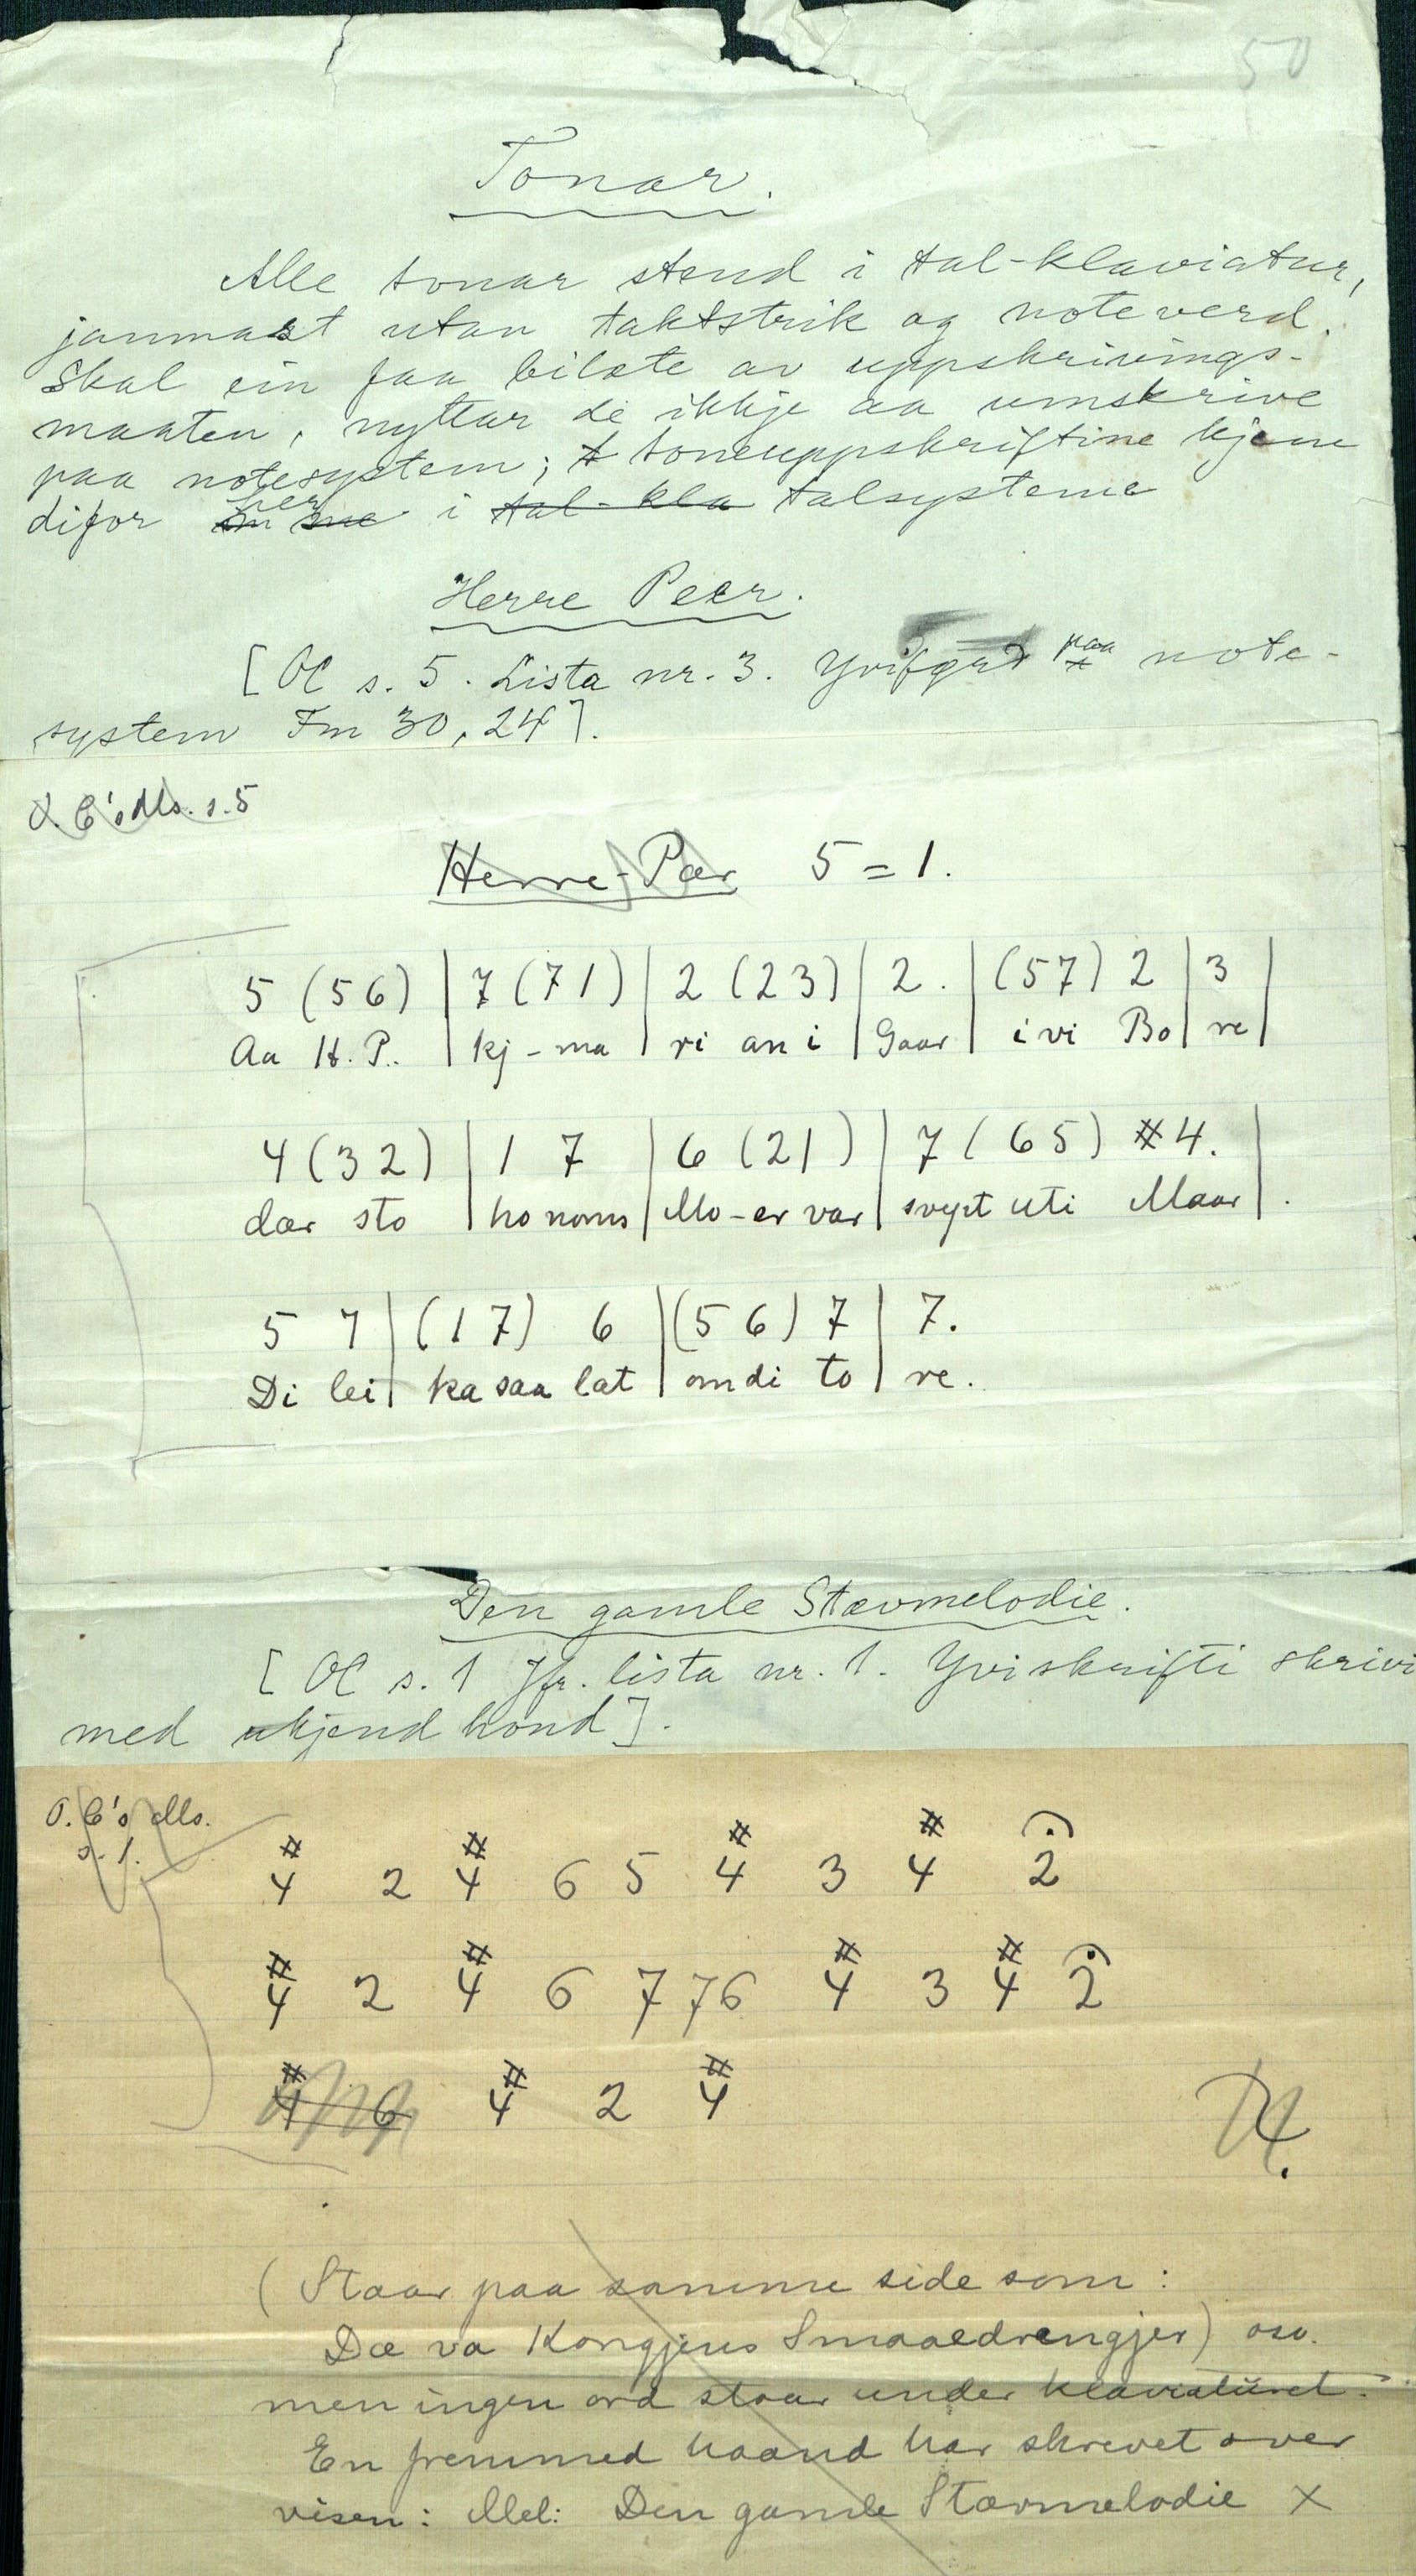 50
Tonar.
Alle tonar stend i tal-klaviatur,
jammast utan taktstrik og noteverd.
Skal ein faa bilæte av uppskrivings-
maaten, nyttar de ikkje aa umskrive
paa notesystem; t toneuppskriftine kjem
difor her i tal-kla talsysteme
Herre Peer.
[OC s. 5. Lista nr. 3. Yviført paa note-
system Fm 30, 24].
O. C's Ms. s. 5
Herre-Pær 5 = 1.
5 (56) | 7 (71) | 2 (23) | 2 . | (57) 2 | 3 |
Aa H. P. | kj - ma | ri an i | Gaar | i vi Bo | re |
4 (32) | 1 7 | 6 (21) | 7 (65) #4. |
dær sto | ho noms | Mo-er var | svept uti Maar | .
5 7 | (17) 6 | (56) 7 | 7.
Di lei | ka saa lat | om di to | re.
Den gamle Stævmelodie.
[OC s. 1 Jfr. lista nr. 1. Yviskrifti skrivi
med ukjend hond].
O. C's Ms.
s. 1.
# # # #
4 2 4 6 5 4 3 4 2
# # # #
4 2 4 6 7 76 4 3 4 2
# # #
4 6 4 2 4
4.
(Staar paa samme side som:
Dæ va Kongjens Smaaedrengjer) osv.
men ingen ord staar under klaviaturet.
En fremmed haand har skrevet over
visen: Mel: Den gamle Stævmelodie X